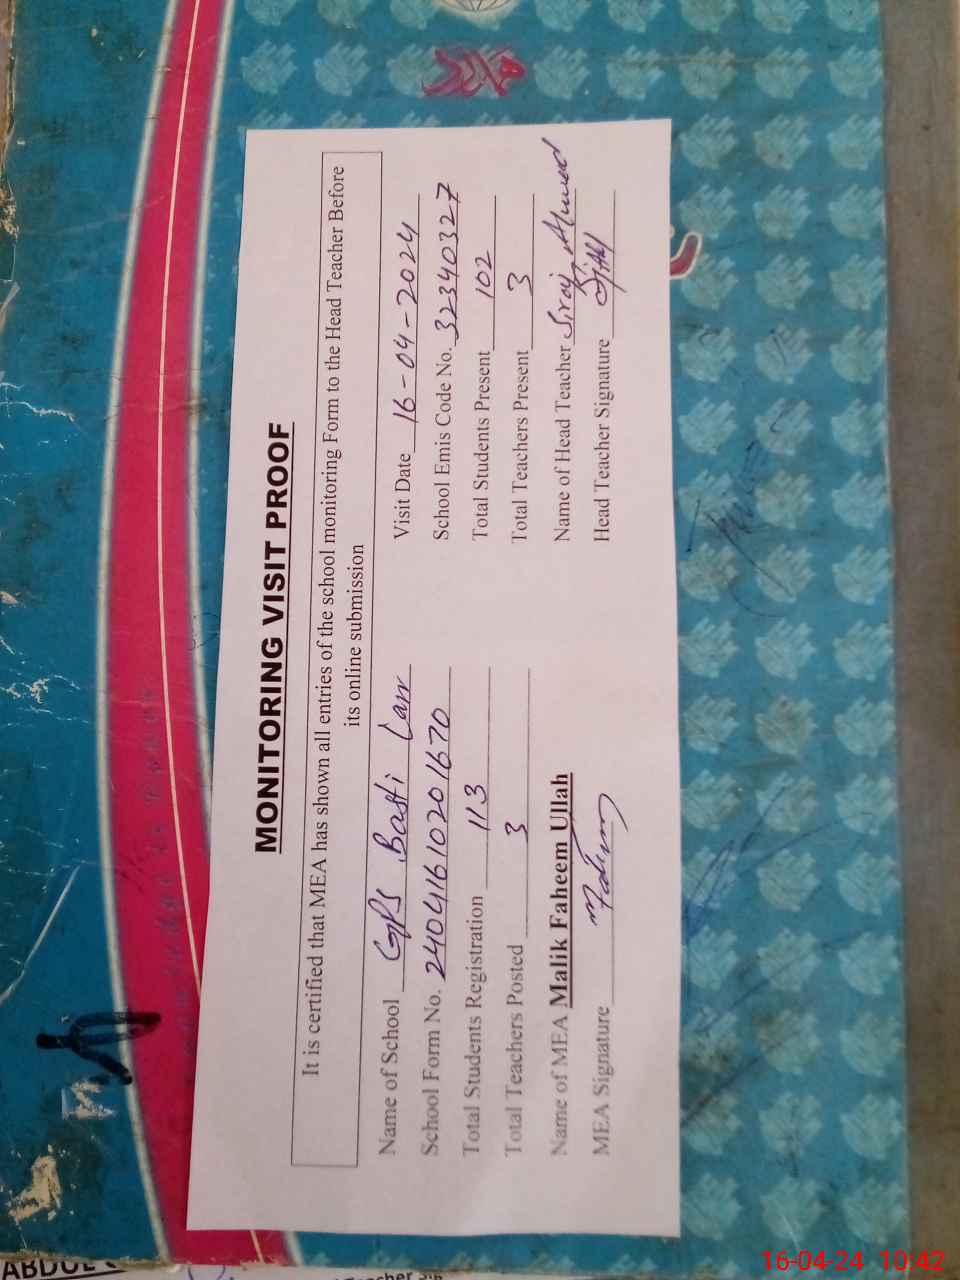 MONITORING VISIT PROOF
It is certified that MEA has shown all entries of the school monitoring Form to the Head Teacher Before
its online submission
Name of School GPS Basti Larr Visit Date 16-04-2024
School Form No. 2404161020 1670 School Emis Code No. 32340327
Total Students Registration 113 Total Students Present 102
Total Teachers Posted 3 Total Teachers Present 3
Name of MEA Malik Faheem Ullah Name of Head Teacher Siraj Ahmad
MEA Signature Head Teacher Signature
ABDUL
16-04-24 10:42